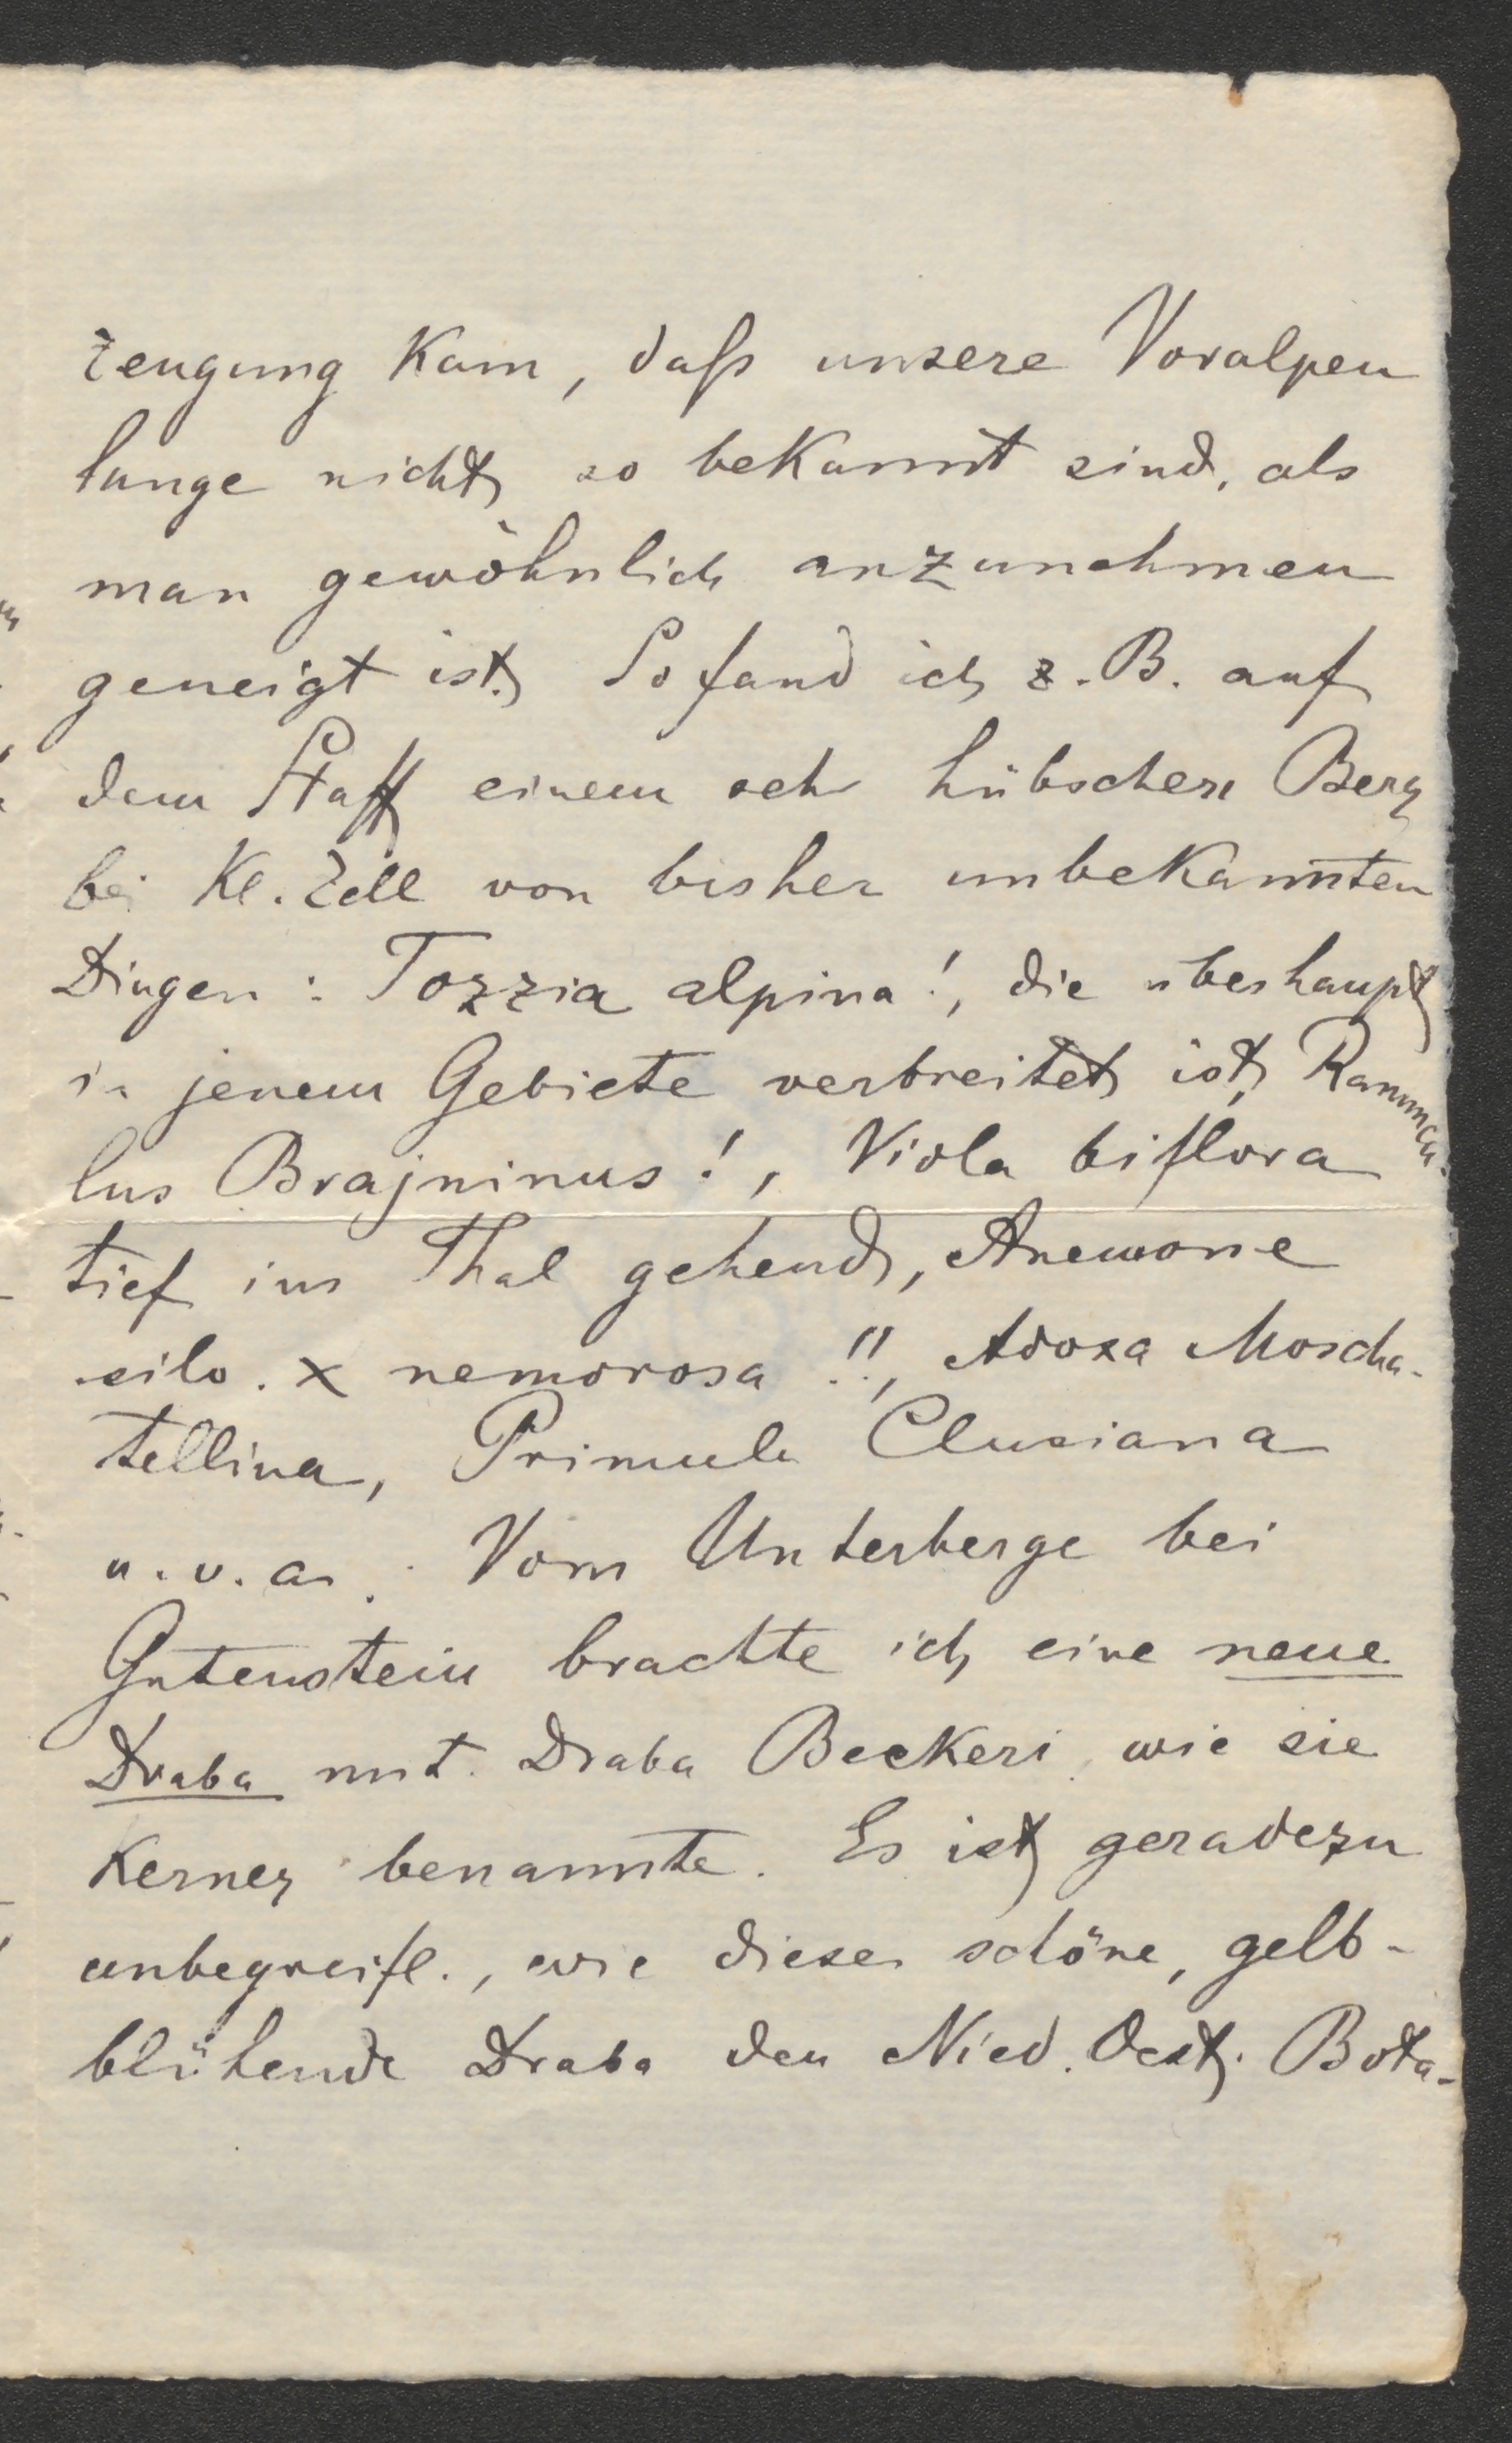 zeugung kam, daſs unsere Voralpen
lange nicht so bekannt sind, als
man gewöhnlich anzunehmen
geneigt ist. So fand ich z. B. auf
dem Staff einem seh hübschen Berg
bei Kl. Zell von bisher unbekannten
Dingen: Tozzia alpina!, die überhaupt
in jenem Gebiete verbreitet ist, Ranuncu-
lus Brajninus!, Viola biflora
tief ins Thal gehend, Anemone
silv. x nemorosa!!, Adoxa Moscha-
tellina, Primula Clusiana
u. v. a. Vom Unterberge bei
Gutenstein brachte ich eine neue
Draba mit. Draba Beckeri wie sie
Kerner benannte. Es ist geradezu
unbegreifl., wie diese schöne, gelb-
blühende Draba den Nied. Oest. Bota-